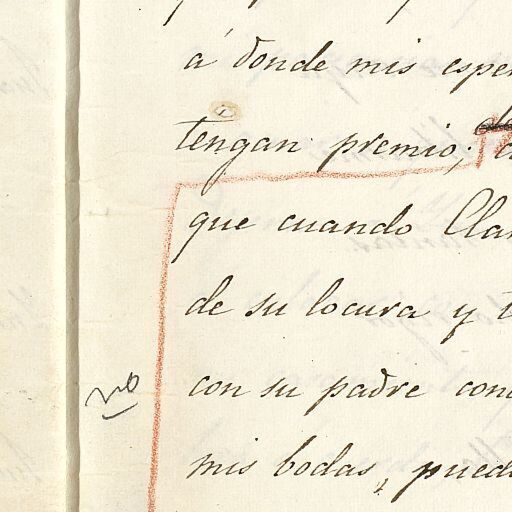 á donde mis espe
tengan premio;
que cuando Cla
de su locura y t
no
con su padre con
mis bodas, pued